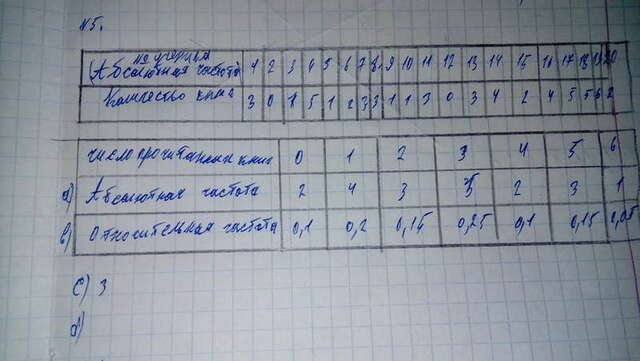 №5.
№ ученика 1 2 3 4 5 6 7 8 9 10 11 12 13 14 15 16 17 18 19 20
(Абсолютная частота)
Количество книг 3 0 1 5 1 2 3 3 1 1 3 0 3 4 2 4 5 5 6 2
число прочитанных книг 0 1 2 3 4 5 6
a) Абсолютная частота 2 4 3 5 2 3 1
b) Относительная частота 0,1 0,2 0,15 0,25 0,1 0,15 0,05
c) 3
d)